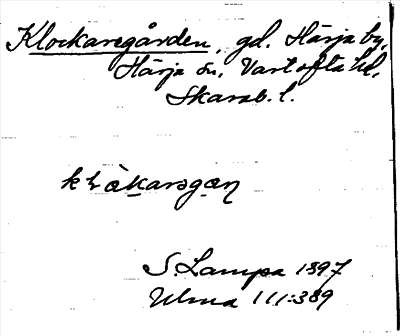 Klockaregården, gd. Härja by,
Härja sn, Vartofta hd,
Skarab. l.
S. Lampa 1897
Ulma 111:389